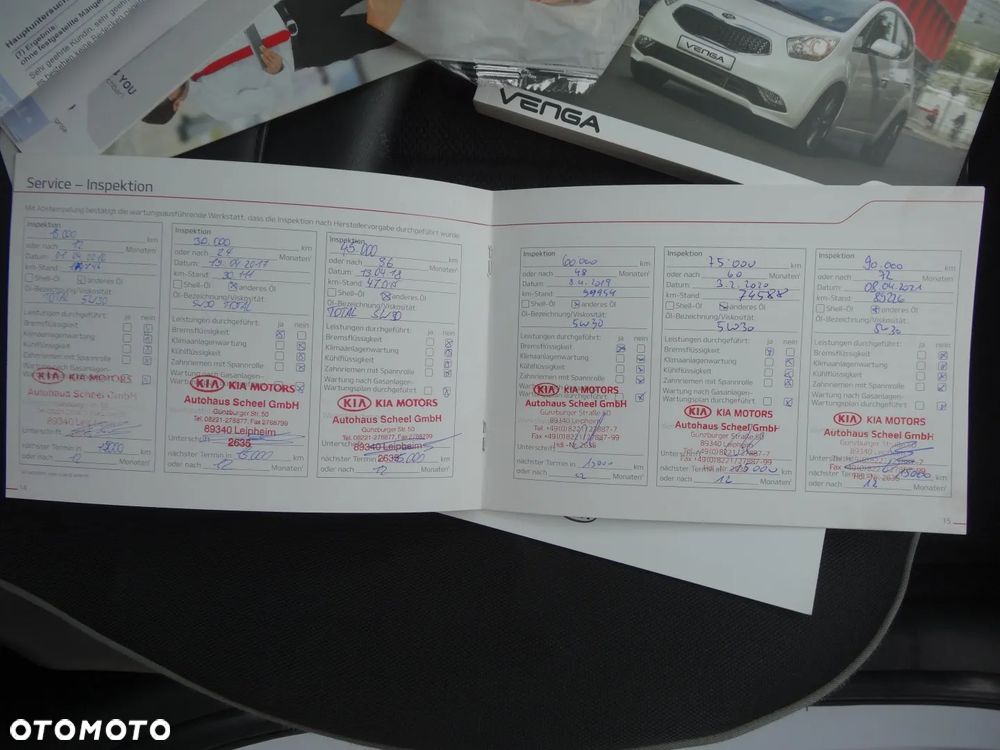 Hauptuntersuchung
(7) Ergebnis:
ohne festgestellte Mängel
Sehr geehrte Kundin, sehr
YOU
VENGA
VENGA
Service – Inspektion
Mit Abstempelung bestätigt die wartungsausführende Werkstatt, dass die Inspektion nach Herstellervorgabe durchgeführt wurde
Inspektion
km
oder nach 12 Monaten¹
Datum:
km-Stand
Shell-Öl anderes Öl
Öl-Bezeichnung/Viskosität:
TOTAL 5W30
Leistungen durchgeführt: ja nein
Bremsflüssigkeit
Klimaanlagenwartung
Kühlflüssigkeit
Zahnriemen mit Spannrolle
Wartung nach Gasanlagen-
KIA KIA MOTORS
Autohaus Scheel GmbH
89340 Leipheim
Unterschrift
nächster Termin in 15000 km
oder nach 12 Monaten¹
14
Inspektion
30.000 km
oder nach 24 Monaten¹
Datum: 19.04.2017
km-Stand: 30 111
Shell-Öl anderes Öl
Öl-Bezeichnung/Viskosität:
5W30 TOTAL
Leistungen durchgeführt: ja nein
Bremsflüssigkeit
Klimaanlagenwartung
Kühlflüssigkeit
Zahnriemen mit Spannrolle
Wartung nach Gasanlagen-
KIA KIA MOTORS
Autohaus Scheel GmbH
Günzburger Str. 50
Tel. 08221-278877, Fax 2768799
89340 Leipheim
2635
Unterschrift
nächster Termin in 15.000 km
oder nach 12 Monaten¹
Inspektion
45.000 km
oder nach 36 Monaten¹
Datum: 13.04.18
km-Stand:
Shell-Öl anderes Öl
Öl-Bezeichnung/Viskosität:
TOTAL 5W30
Leistungen durchgeführt: ja nein
Bremsflüssigkeit
Klimaanlagenwartung
Kühlflüssigkeit
Zahnriemen mit Spannrolle
Wartung nach Gasanlagen-
Wartungsplan durchgeführt
KIA KIA MOTORS
Autohaus Scheel GmbH
Günzburger Str. 50
89340 Leipheim
2635
Unterschrift
nächster Termin in 15.000 km
oder nach 12 Monaten¹
Inspektion
60.000 km
oder nach 48 Monaten¹
Datum 8.4.2019
km-Stand: 59954
Shell-Öl anderes Öl
Öl-Bezeichnung/Viskosität:
5W30
Leistungen durchgeführt: ja nein
Bremsflüssigkeit
Klimaanlagenwartung
Kühlflüssigkeit
Zahnriemen mit Spannrolle
Wartung nach Gasanlagen-
KIA KIA MOTORS
Autohaus Scheel GmbH
Günzburger Straße 50
89340 Leipheim
Tel. +49(0)8221/27887-7
Fax +49(0)8221/27887-99
Hdl.-Nr. 2635
Unterschrift
nächster Termin in 15000 km
oder nach 12 Monaten¹
Inspektion
75.000 km
oder nach 60 Monaten¹
Datum: 3.2.2020
km-Stand: 74588
Shell-Öl anderes Öl
Öl-Bezeichnung/Viskosität:
5W30
Leistungen durchgeführt: ja nein
Bremsflüssigkeit
Klimaanlagenwartung
Kühlflüssigkeit
Zahnriemen mit Spannrolle
Wartung nach Gasanlagen-
Wartungsplan durchgeführt
KIA KIA MOTORS
Autohaus Scheel GmbH
Günzburger Straße 50
89340 Leipheim
Tel. +49(0)8221/27887-7
Fax +49(0)8221/27887-99
Hdl.-Nr. 2635
nächster Termin in 15000 km
oder nach 12 Monaten¹
Inspektion
90.000 km
oder nach 72 Monaten¹
Datum: 08.04.2021
km-Stand: 85226
Shell-Öl anderes Öl
Öl-Bezeichnung/Viskosität:
5W30
Leistungen durchgeführt: ja nein
Bremsflüssigkeit
Klimaanlagenwartung
Kühlflüssigkeit
Zahnriemen mit Spannrolle
Wartung nach Gasanlagen-
Wartungsplan durchgeführt
KIA KIA MOTORS
Autohaus Scheel GmbH
Günzburger Straße 50
89340 Leipheim
Hdl.-Nr. 2635
nächster Termin in 15000 km
oder nach 12 Monaten¹
15
OTOMOTO